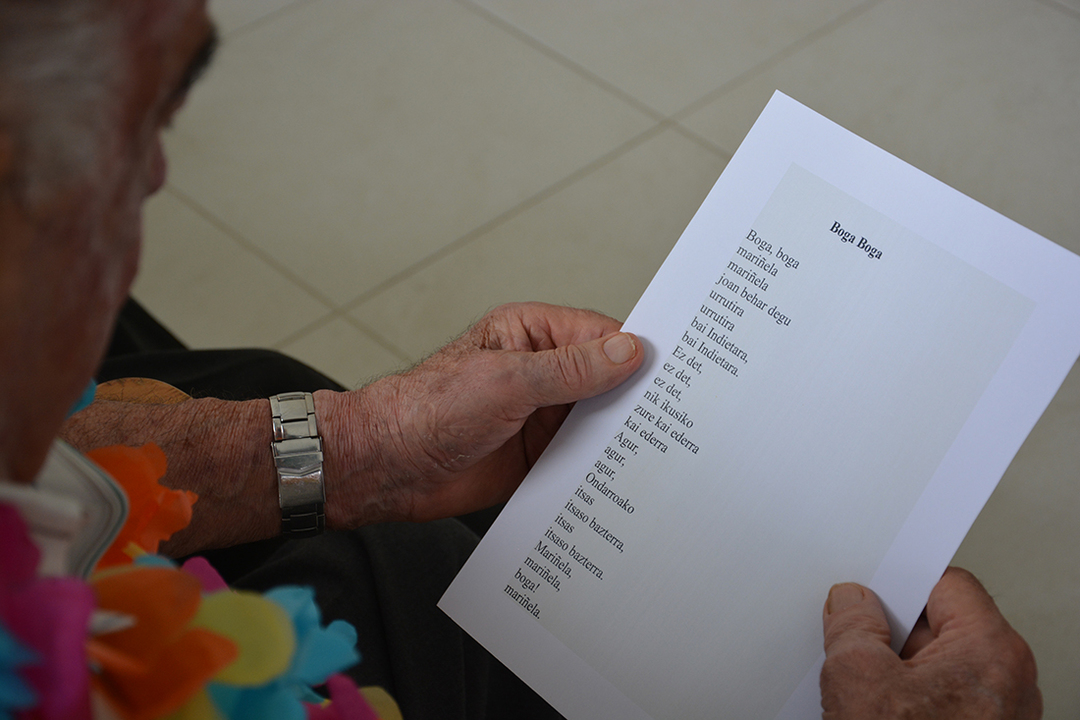 Boga Boga
Boga, boga
mariñela
mariñela
joan behar degu
urrutira
urrutira
bai Indietara,
bai Indietara.
Ez det,
ez det,
ez det,
nik ikusiko
zure kai ederra
kai ederra
Agur,
agur,
agur,
Ondarroako
itsas
itsaso bazterra,
itsas
itsaso bazterra.
Mariñela,
mariñela,
boga!
mariñela.